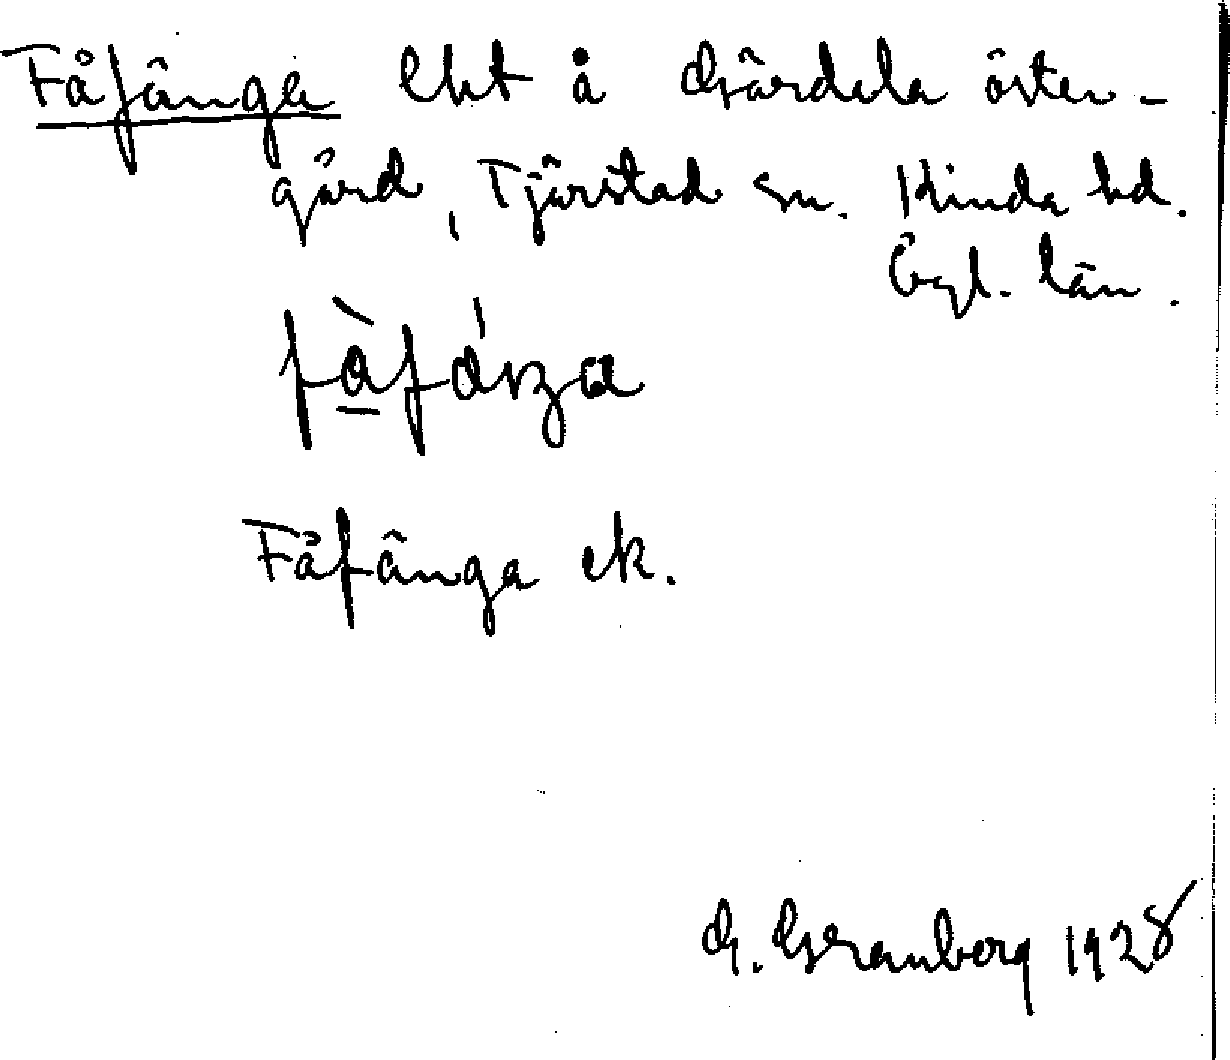 Fåfänga lht å Gärdala öster-
gård, Tjärstad sn. Kinda hd.
Ögl. län.
Fåfänga ek.
G. Granberg 1928